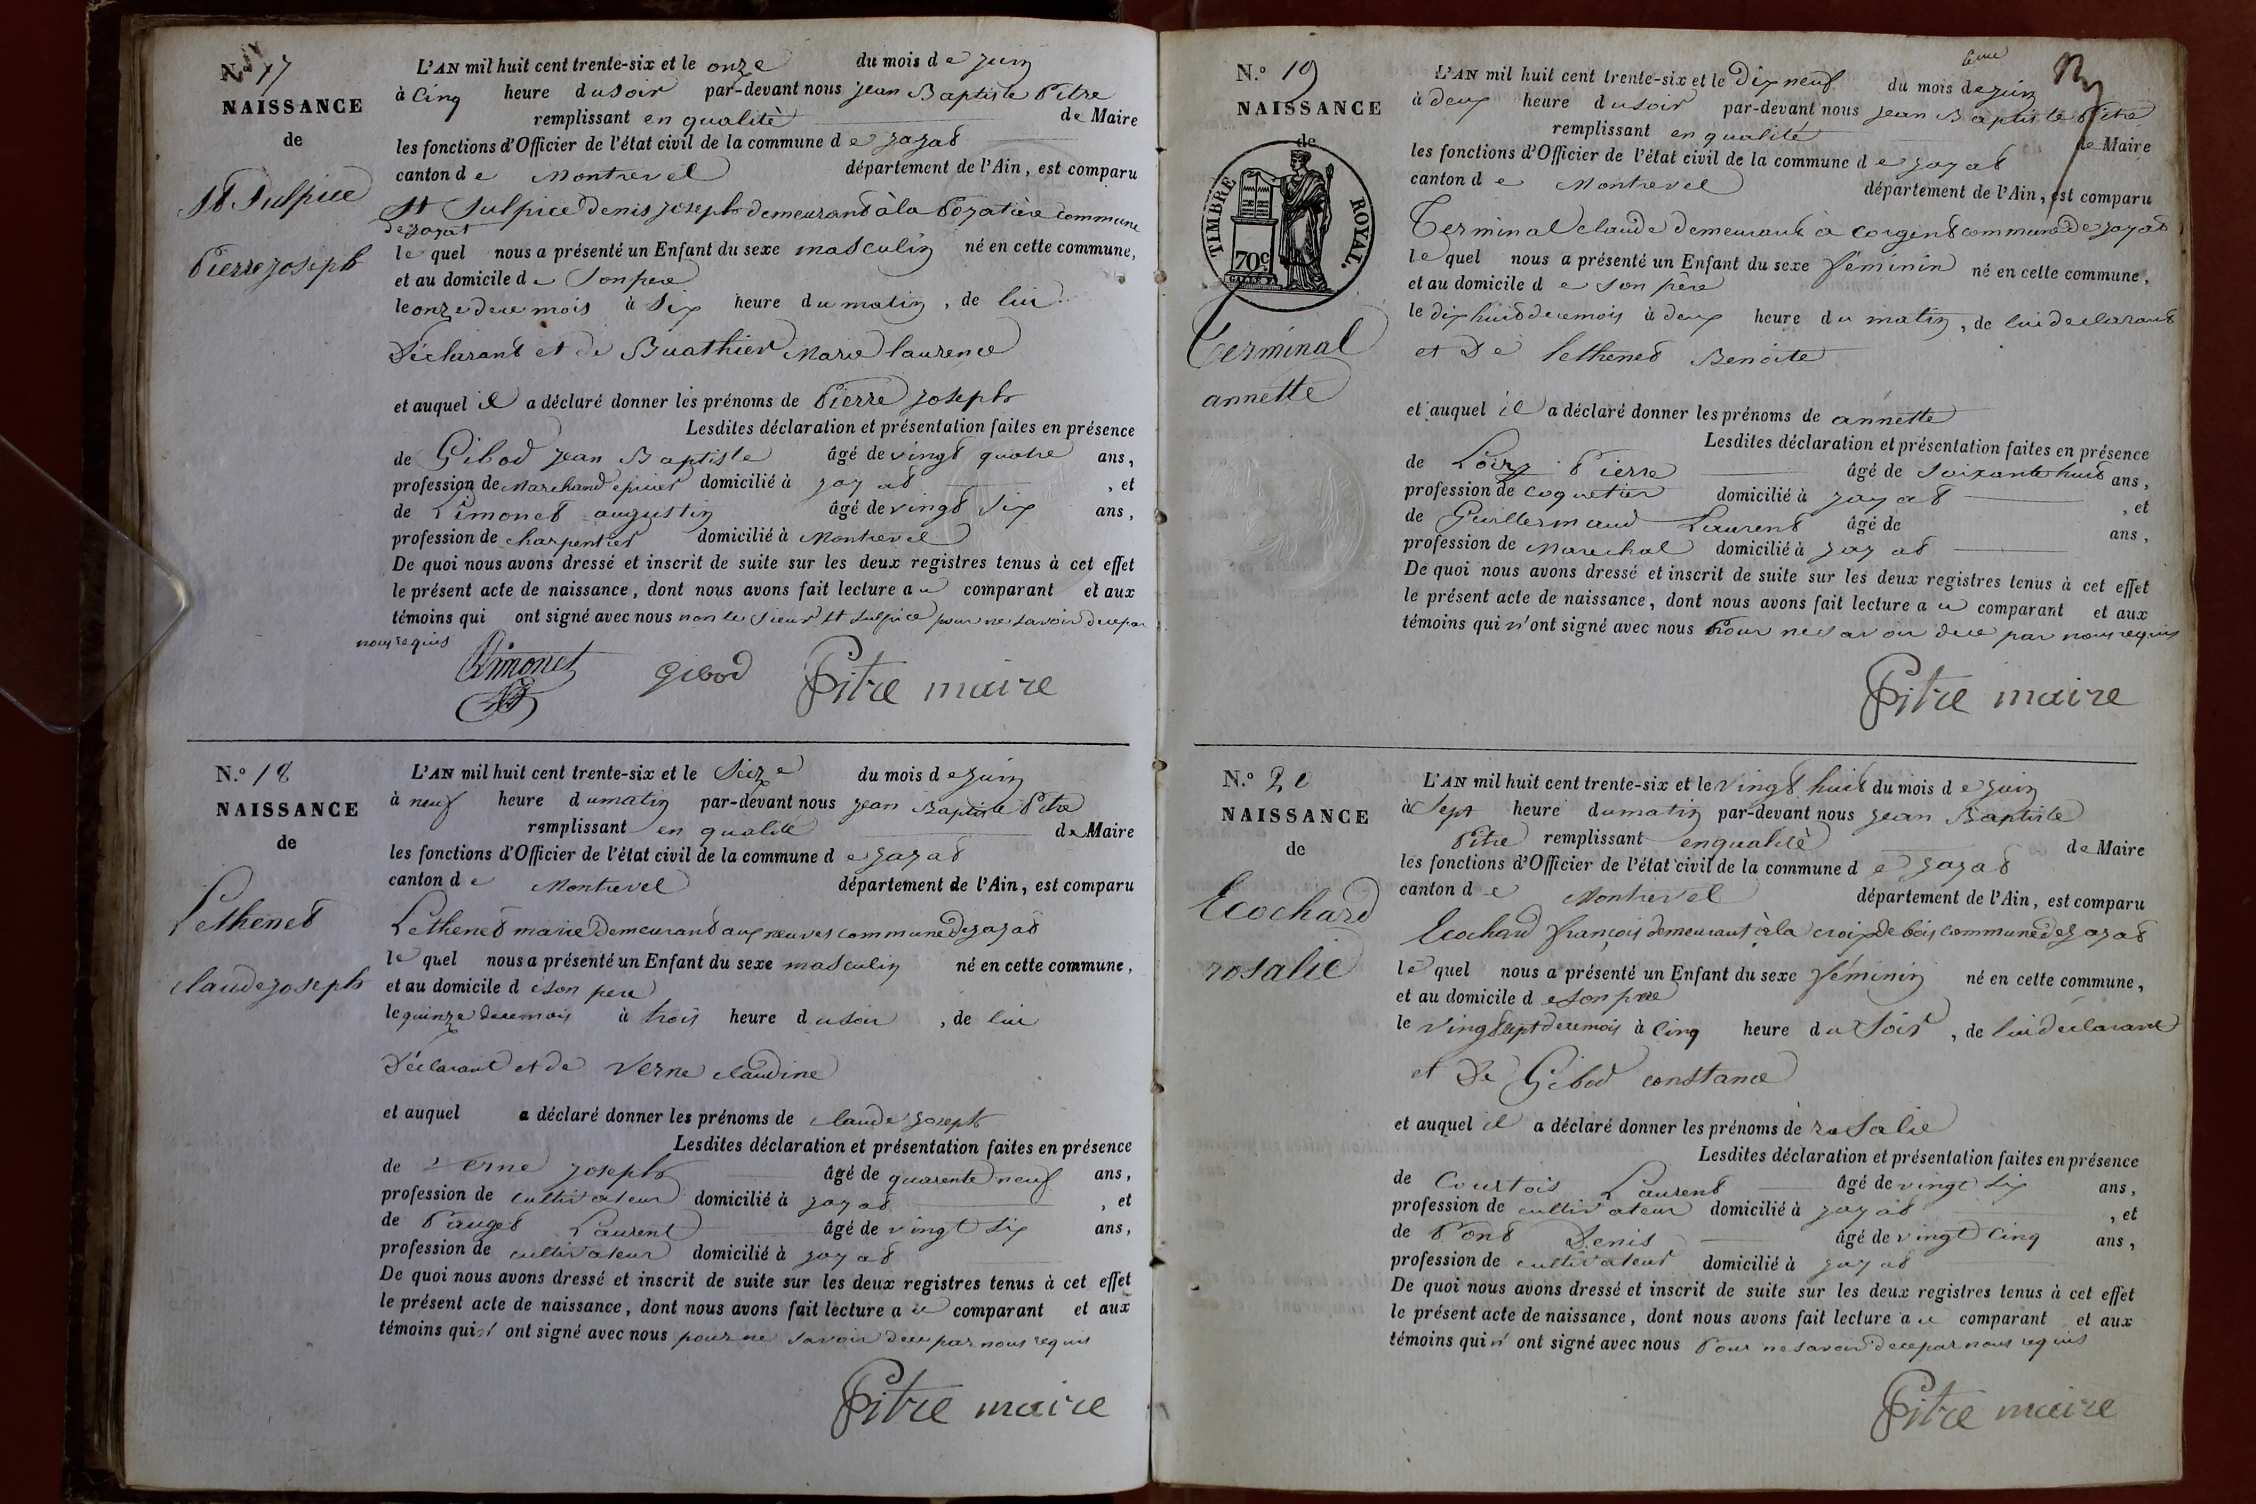 N.º 17
NAISSANCE
de
St Sulpice
Pierre joseph
L'AN mil huit cent trente-six et le onze du mois de juin
à cinq heure du soir par-devant nous jean Baptiste Pitre
remplissant en qualité de Maire
les fonctions d'Officier de l'état civil de la commune de jayat
canton de Montrevel département de l'Ain, est comparu
St Sulpice denis joseph demeurant à la commune
de jayat
le quel nous a présenté un Enfant du sexe masculin né en cette commune,
et au domicile de son pere
le onze de ce mois à six heure du matin, de lui
Déclarant et de Buathier Marie laurence
et auquel il a déclaré donner les prénoms de Pierre joseph
Lesdites déclaration et présentation faites en présence
de Gibod jean Baptiste âgé de vingt quatre ans,
profession de Marchand epicier domicilié à jayat , et
de Limonet augustin âgé de vingt six ans,
profession de charpentier domicilié à Montrevel
De quoi nous avons dressé et inscrit de suite sur les deux registres tenus à cet effet
le présent acte de naissance, dont nous avons fait lecture au comparant et aux
témoins qui ont signé avec nous non le sieur St Sulpice pour ne savoir de ce par
nous requis
Limonet Gibod Pitre maire
N.º 18
NAISSANCE
de
Lethenet
claude joseph
L'AN mil huit cent trente-six et le Seize du mois de juin
à neuf heure du matin par-devant nous jean Baptiste Pitre
remplissant en qualité de Maire
les fonctions d'Officier de l'état civil de la commune de jayat
canton de Montrevel département de l'Ain, est comparu
Lethenet marie demeurant aux neuves commune de jayat
le quel nous a présenté un Enfant du sexe masculin né en cette commune,
et au domicile de son pere
le quinze de ce mois à trois heure du soir , de lui
Déclarant et de Verne claudine
et auquel a déclaré donner les prénoms de claude joseph
Lesdites déclaration et présentation faites en présence
de Verne joseph âgé de quarente neuf ans,
profession de cultivateur domicilié à jayat , et
de Pauget Laurent âgé de vingt six ans,
profession de cultivateur domicilié à jayat
De quoi nous avons dressé et inscrit de suite sur les deux registres tenus à cet effet
le présent acte de naissance, dont nous avons fait lecture au comparant et aux
témoins qui n' ont signé avec nous pour ne savoir de ce par nous requis
Pitre maire
N.º 19
NAISSANCE
de
TIMBRE ROYAL.
70c
Terminal
annette
L'AN mil huit cent trente-six et le Dix neuf du mois de juin
à deux heure du soir par-devant nous jean Baptiste Pitre
remplissant en qualité de Maire
les fonctions d'Officier de l'état civil de la commune de jayat
canton de Montrevel département de l'Ain, est comparu
Terminal claude demeurant à Corgent commune de jayat
le quel nous a présenté un Enfant du sexe féminin né en cette commune,
et au domicile de son père
le dix huit de ce mois à deux heure du matin, de lui declarant
et De Lethenet Benoite
et auquel il a déclaré donner les prénoms de annette
Lesdites déclaration et présentation faites en présence
de Pierre âgé de soixante huit ans,
profession de coquetier domicilié à jayat , et
de Guillermaud Laurent âgé de ans,
profession de Marechal domicilié à jayat
De quoi nous avons dressé et inscrit de suite sur les deux registres tenus à cet effet
le présent acte de naissance, dont nous avons fait lecture au comparant et aux
témoins qui n'ont signé avec nous Pour ne savoir de ce par nous requis
Pitre maire
N.º 20
NAISSANCE
de
Ecochard
rosalie
L'AN mil huit cent trente-six et le vingt huit du mois de juin
à Sept heure du matin par-devant nous jean Baptiste
Pitre remplissant en qualité de Maire
les fonctions d'Officier de l'état civil de la commune de jayat
canton de Montrevel département de l'Ain, est comparu
Ecochard françois demeurant à la croix de bois commune de jayat
le quel nous a présenté un Enfant du sexe féminin né en cette commune,
et au domicile de son père
le vingt sept de ce mois à cinq heure du Soir , de lui declarant
et De Gibod constance
et auquel il a déclaré donner les prénoms de rosalie
Lesdites déclaration et présentation faites en présence
de Courtois Laurent âgé de vingt six ans,
profession de cultivateur domicilié à jayat , et
de Pont Denis âgé de vingt cinq ans,
profession de cultivateur domicilié à jayat
De quoi nous avons dressé et inscrit de suite sur les deux registres tenus à cet effet
le présent acte de naissance, dont nous avons fait lecture au comparant et aux
témoins qui n' ont signé avec nous Pour ne savoir de ce par nous requis
Pitre maire